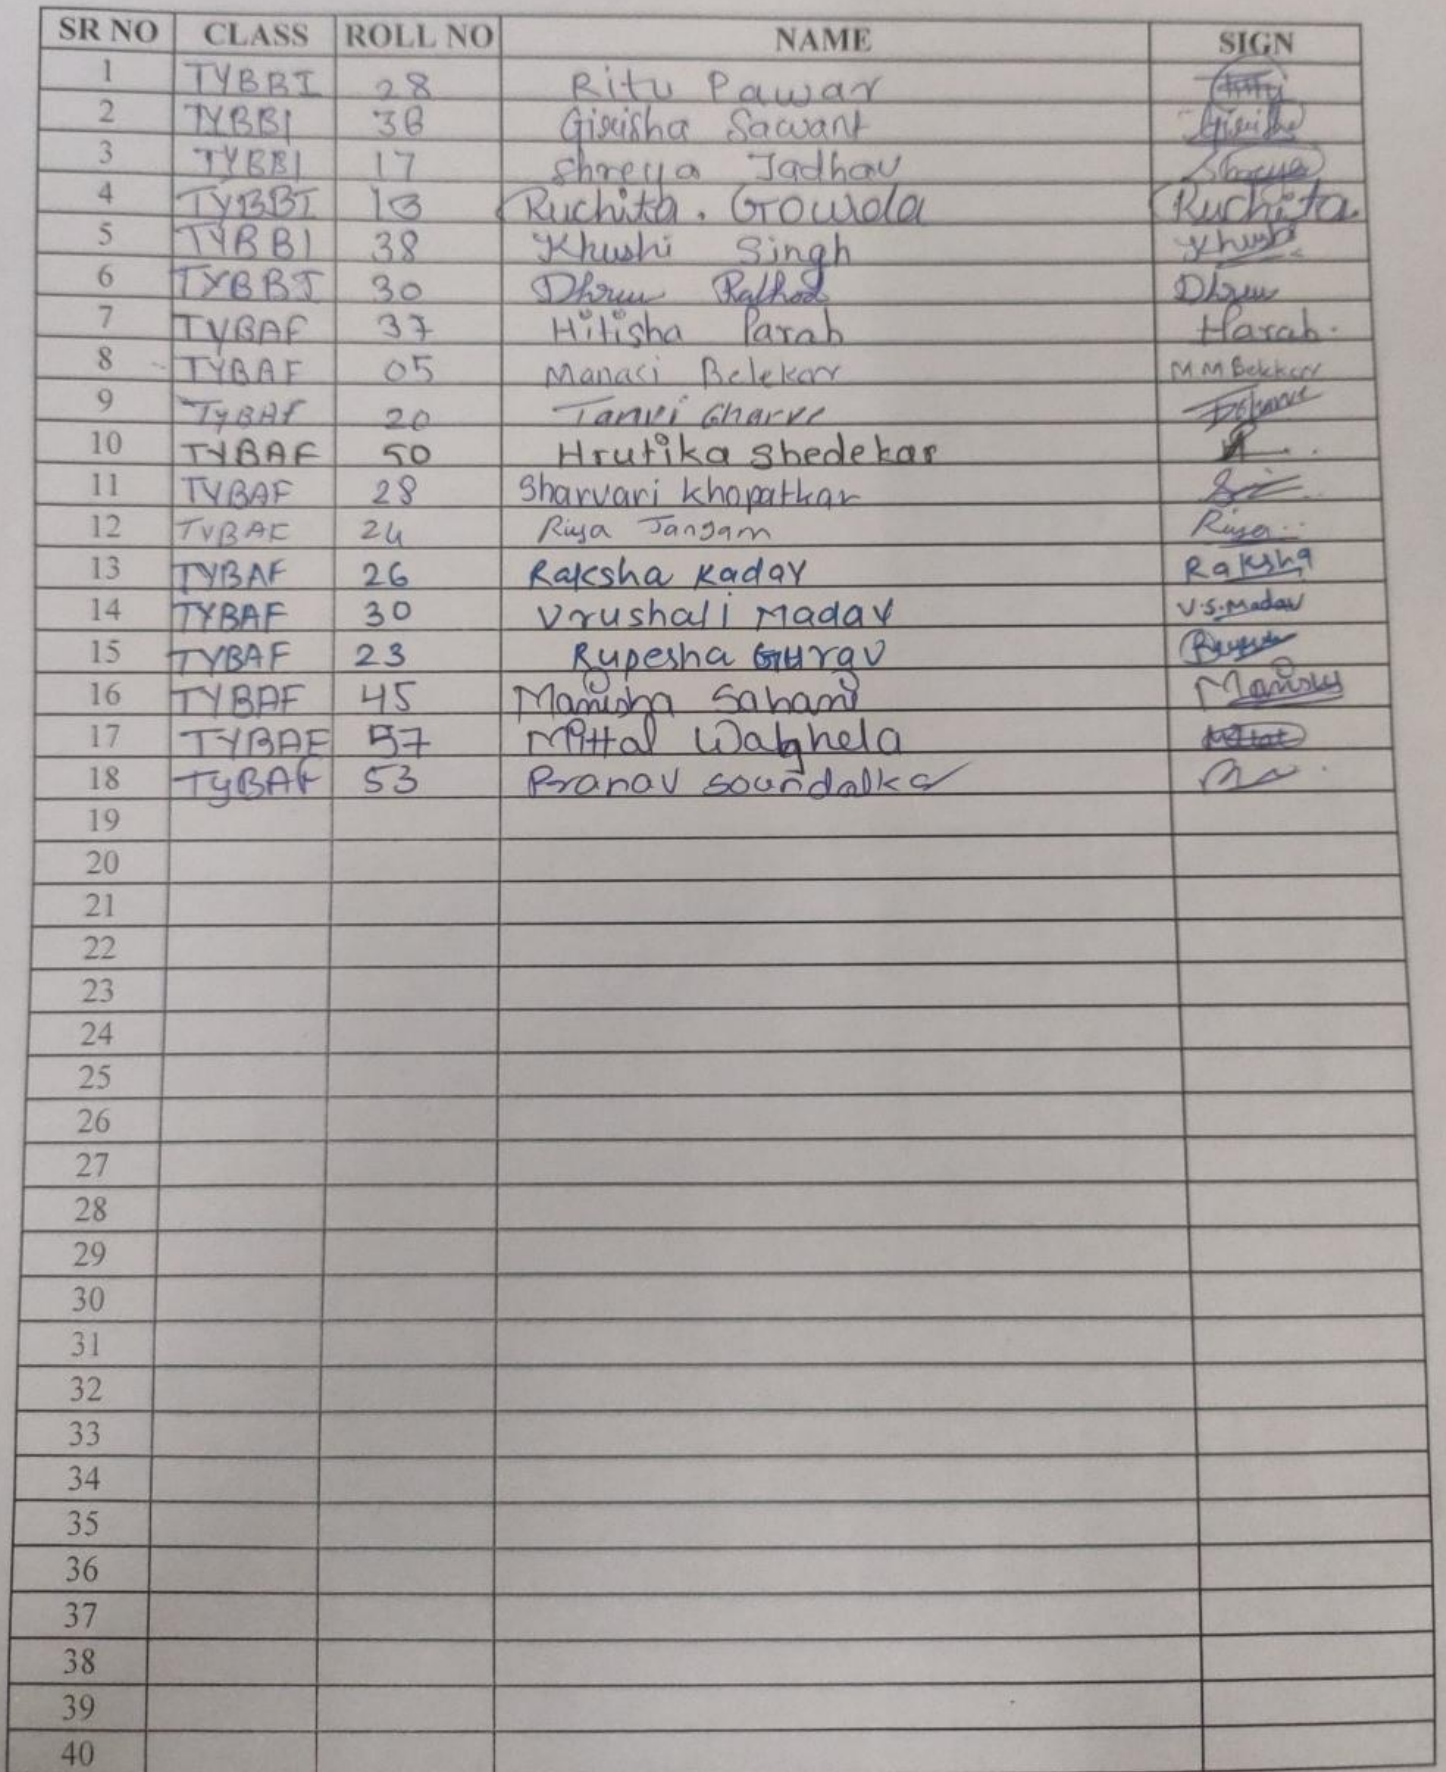 SR NO CLASS ROLL NO NAME SIGN
1 TYBBI 28 Ritu Pawar
2 TYBBI 36 Girisha Sawant Girisha
3 TYBBI 17 Shreya Jadhav Shreya
4 TYBBI 13 Ruchita. Gowda Ruchita.
5 TYBBI 38 Khushi Singh Khushi
6 TYBBI 30 Dhruv Rathod Dhruv
7 TYBAF 37 Hitisha Parab Harab.
8 TYBAF 05 Manasi Belekar M M Belekar
9 TYBAF 20 Tanvi Gharve
10 TYBAF 50 Hrutika Shedekar
11 TYBAF 28 Sharvari Khopatkar
12 TYBAF 24 Riya Jangam Riya
13 TYBAF 26 Raksha Kadav Raksha
14 TYBAF 30 Vrushali Madav V.S.Madav
15 TYBAF 23 Rupesha Gurav
16 TYBAF 45 Manisha Sahani
17 TYBAF 57 Mittal Waghela
18 TYBAF 53 Pranav Soundalkar
19
20
21
22
23
24
25
26
27
28
29
30
31
32
33
34
35
36
37
38
39
40